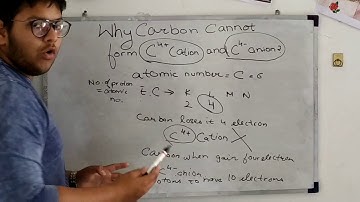 Why Carbon Cannot
form C4+ Cation and C4- anion?
atomic number = C = 6
No. of proton
= atomic
no.
E.C → K L M N
2 4
Carbon loses it 4 electron
C4+ Cation X
Carbon when gain four electron
C4- anion
protons to have 10 electrons